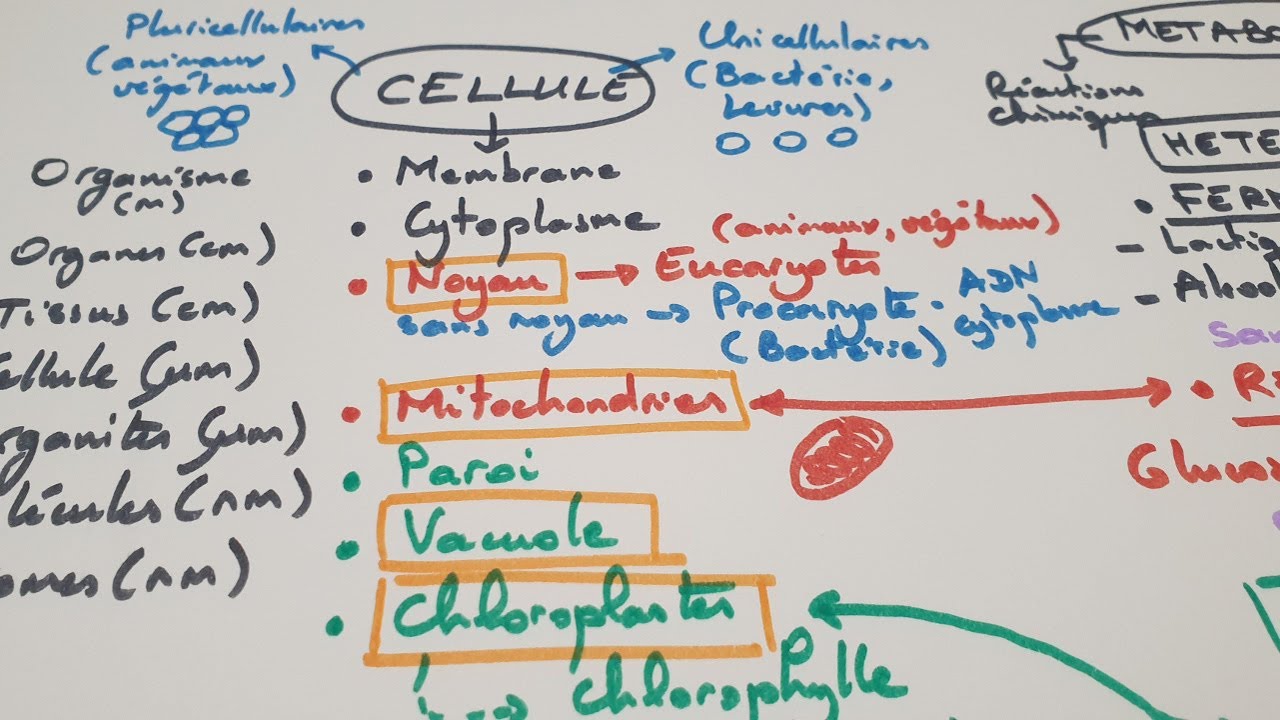 Pluricellulaires
(animaux
végétaux)
CELLULE
Unicellulaires
(Bactérie,
Levures)
METABO
Réactions
chimiques
HETE
Organisme
(m)
Organes (cm)
Tissus (cm)
ellule (µm)
rganites (µm)
lécules (nm)
omes (nm)
• Membrane
• Cytoplasme
• Noyau → Eucaryotes
(animaux, végétaux)
sans noyau → Procaryote - ADN
(Bactérie) cytoplasme
• Mitochondries
• Paroi
• Vacuole
• Chloroplastes
→ chlorophylle
• FERM
- Lactiq
- Alcoo
San
• R
Glucos